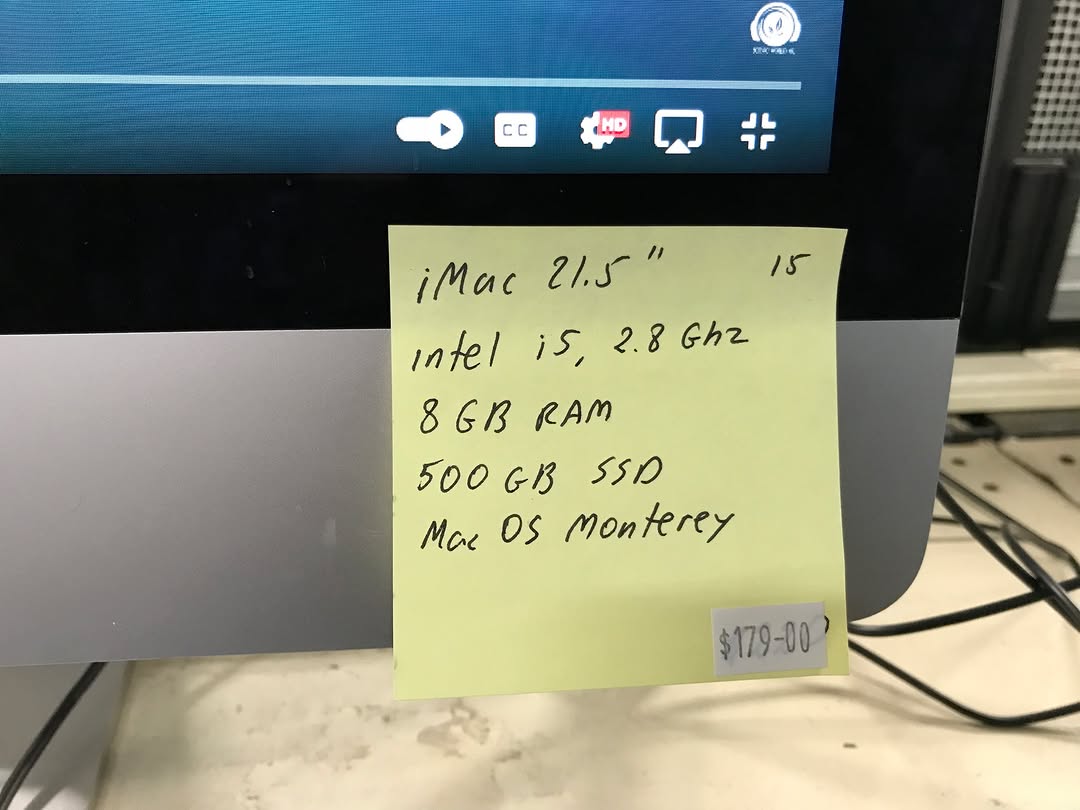 CC
HD
iMac 21.5" 15
intel i5, 2.8 Ghz
8 GB RAM
500 GB SSD
Mac OS Monterey
$179-00